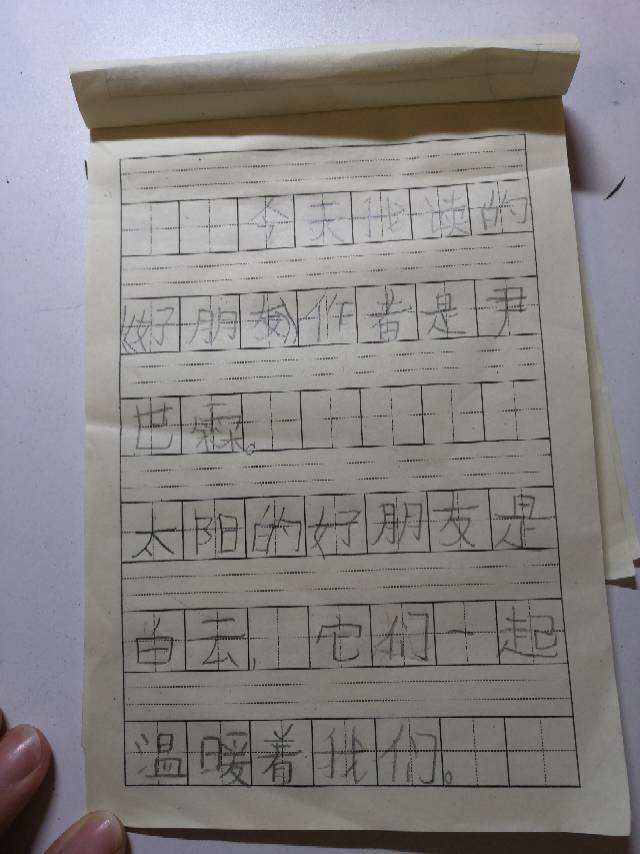 今天我读的
《好朋友》作者是尹
世霖。
太阳的好朋友是
白云,它们一起
温暖着我们。